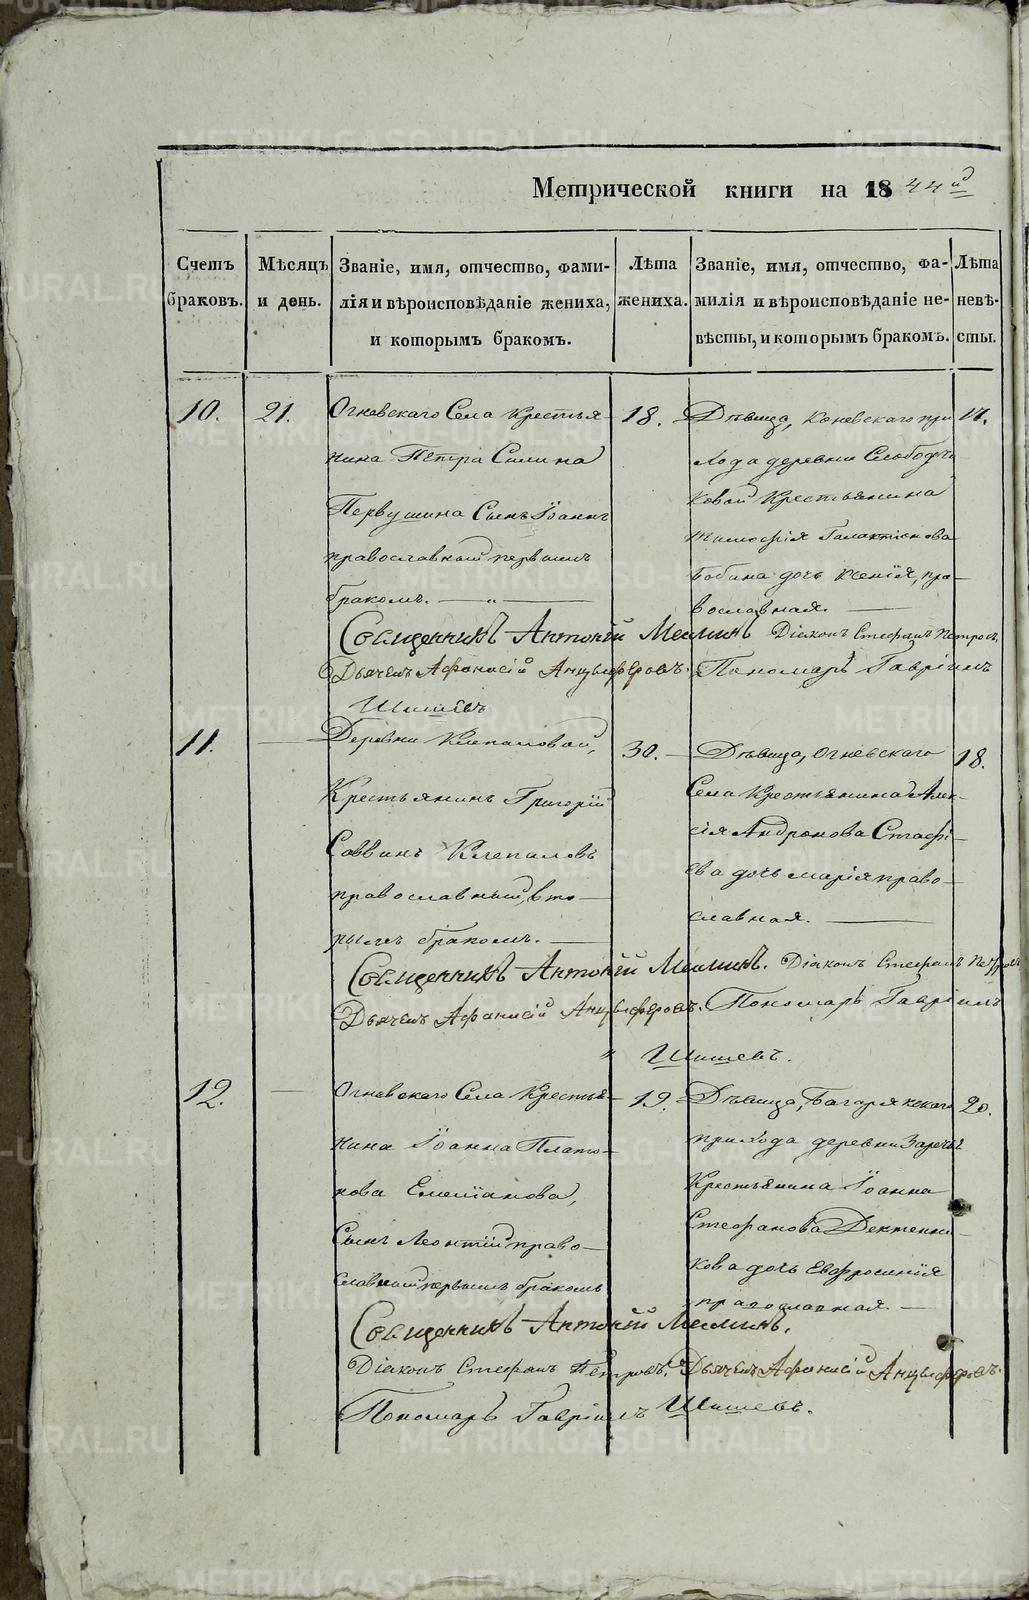 Метрической книги на 1844й
Счетъ браковъ.
Мѣсяцъ и день.
Званіе, имя, отчество, фами-
лія и вѣроисповѣданіе жениха,
и которымъ бракомъ.
Лѣта
жениха.
Званіе, имя, отчество, фа-
милія и вѣроисповѣданіе не-
вѣсты, и которымъ бракомъ.
Лѣта
невѣ-
сты.
10.
21.
Огневскаго Села Крестья-
нина Петра Силина
Первушина Сынъ Іоаннъ
православный первымъ
бракомъ.
18.
Дѣвица, Коневскаго при
хода деревни Слободчи
ковой Крестьянина
Тимофѣя Галактіонова
Бобина дочь Ксенія, пра-
вославная.
17.
Священникъ Антоній Меминъ Діаконъ Стефанъ Петровъ,
Дьячекъ Афонасій Анцыферовъ. Пономарь Гавріилъ
Шишевъ
11.
Деревни Клепаловой,
Крестьянинъ Григорій
Саввинъ Клепаловъ
православный, вто-
рымъ бракомъ.
30.
Дѣвица, Огневскаго
Села Крестьянина Алек-
сія Андронова Стафі-
ева дочь Марія право-
славная.
18.
Священникъ Антоній Меминъ. Діаконъ Стефанъ Петровъ
Дьячекъ Афонасій Анцыферовъ. Пономарь Гавріилъ
Шишевъ.
12.
Огневскаго Села Крестья-
нина Іоанна Плато-
нова Емеліанова,
Сынъ Леонтій право-
славный первымъ бракомъ
19.
Дѣвица, Багарякскаго
прихода деревни Зарѣчь
Крестьянина Іоанна
Стефанова Дектенни-
кова дочь Евфросинія
православная.
20.
Священникъ Антоній Меминъ.
Діаконъ Стефанъ Петровъ. Дьячекъ Афонасій Анцыферовъ.
Пономарь Гавріилъ Шишевъ.
METRIKI.GASO-URAL.RU